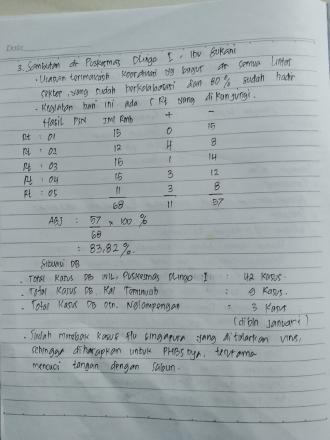 3. Sambutan dr Puskesmas Dlingo I, Ibu Sukani
- Ucapan terimakasih koordinasi yg bagus dr semua lintas
sektor, yang sudah berkolaborasi dan 80% sudah hadir
- Kegiatan hari ini ada 5 Rt yang dikunjungi.
Hasil PJN Jml Rmh + -
Rt : 01 15 0 15
Rt : 02 12 4 8
Rt : 03 15 1 14
Rt : 04 15 3 12
Rt : 05 11 3 8
68 11 57
ABJ : 57 x 100 %
68
= 83,82 %.
Situasi DB
- Total Kasus DB Wil. Puskesmas Dlingo I : 42 Kasus.
- Total Kasus DB Kal Temuwuh : 9 Kasus.
- Total Kasus DB Dsn. Nglampengan : 3 Kasus
(dibln Januari)
- Sudah merebak kasus flu singapura yang ditularkan virus,
sehingga diharapkan untuk PHBS nya, terutama
mencuci tangan dengan sabun.